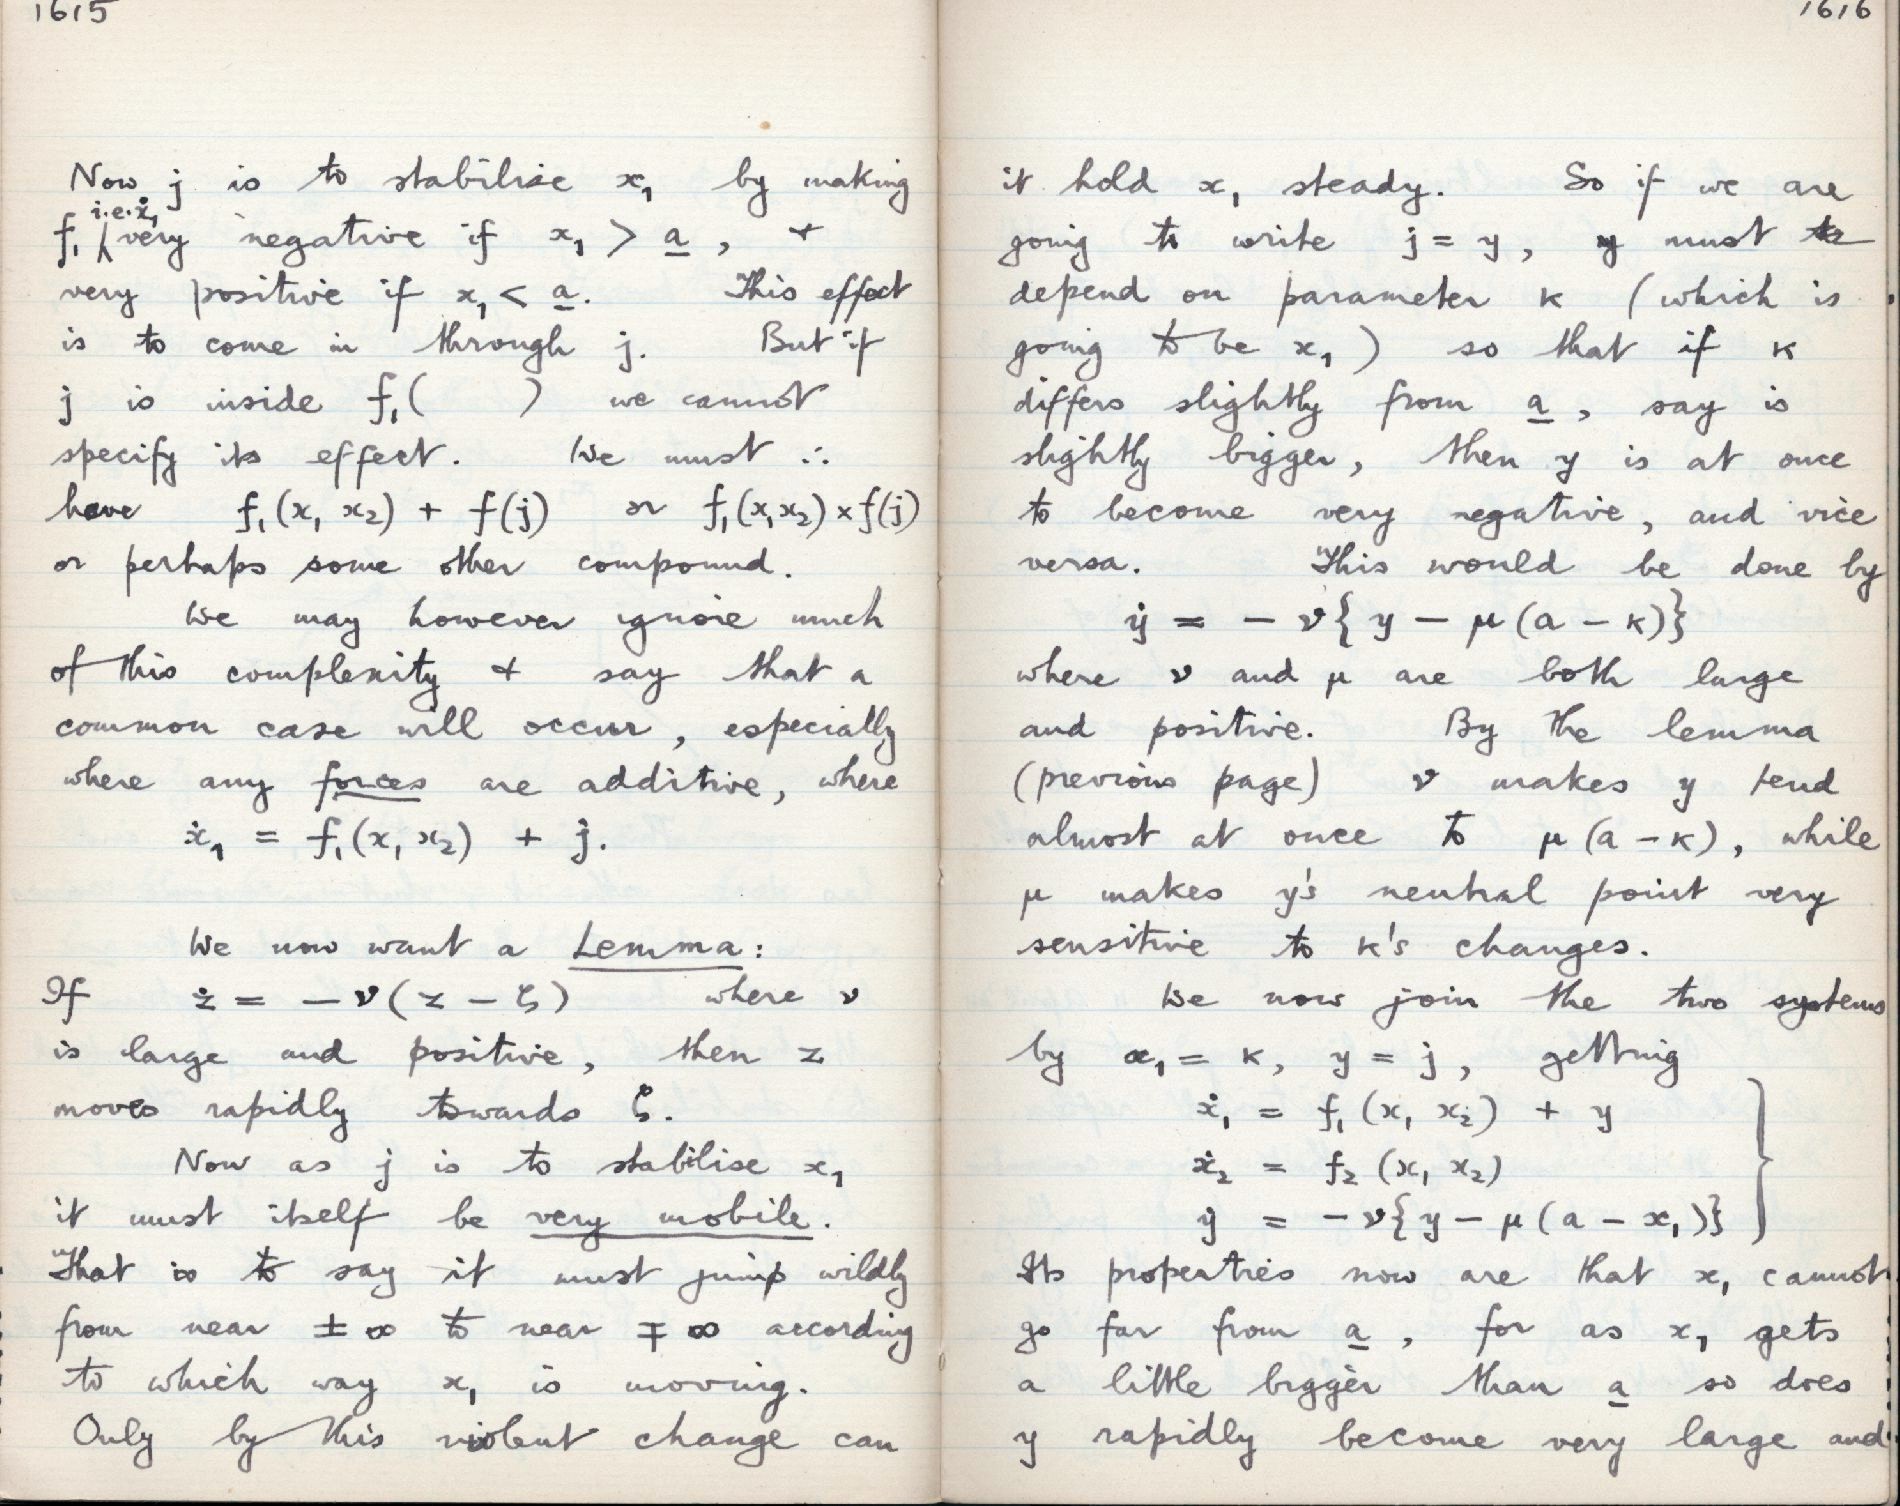 1615
Now j is to stabilise x₁ by making
i.e. ẋ₁
f₁ very negative if x₁ > a, &
very positive if x₁ < a. This effect
is to come in through j. But if
j is inside f₁( ) we cannot
specify its effect. We must ∴
have f₁(x₁ x₂) + f(j) or f₁(x₁x₂) × f(j)
or perhaps some other compound.
We may however ignore much
of this complexity & say that a
common case will occur, especially
where any forces are additive, where
ẋ₁ = f₁(x₁ x₂) + j.
We now want a Lemma:
If ż = −ν(z − ζ) where ν
is large and positive, then z
moves rapidly towards ζ.
Now as j is to stabilise x₁
it must itself be very mobile.
That is to say it must jump wildly
from near ±∞ to near ∓∞ according
to which way x₁ is moving.
Only by this violent change can
1616
it hold x₁ steady. So if we are
going to write j = y, y must
depend on parameter κ (which is
going to be x₁) so that if κ
differs slightly from a, say is
slightly bigger, then y is at once
to become very negative, and vice
versa. This would be done by
ẏ = −ν{y − μ(a − κ)}
where ν and μ are both large
and positive. By the lemma
(previous page) ν makes y tend
almost at once to μ(a − κ), while
μ makes y's neutral point very
sensitive to κ's changes.
We now join the two systems
by x₁ = κ, y = j, getting
ẋ₁ = f₁(x₁ x₂) + y
ẋ₂ = f₂(x₁ x₂)
ẏ = −ν{y − μ(a − x₁)}
Its properties now are that x₁ cannot
go far from a, for as x₁ gets
a little bigger than a so does
y rapidly become very large and